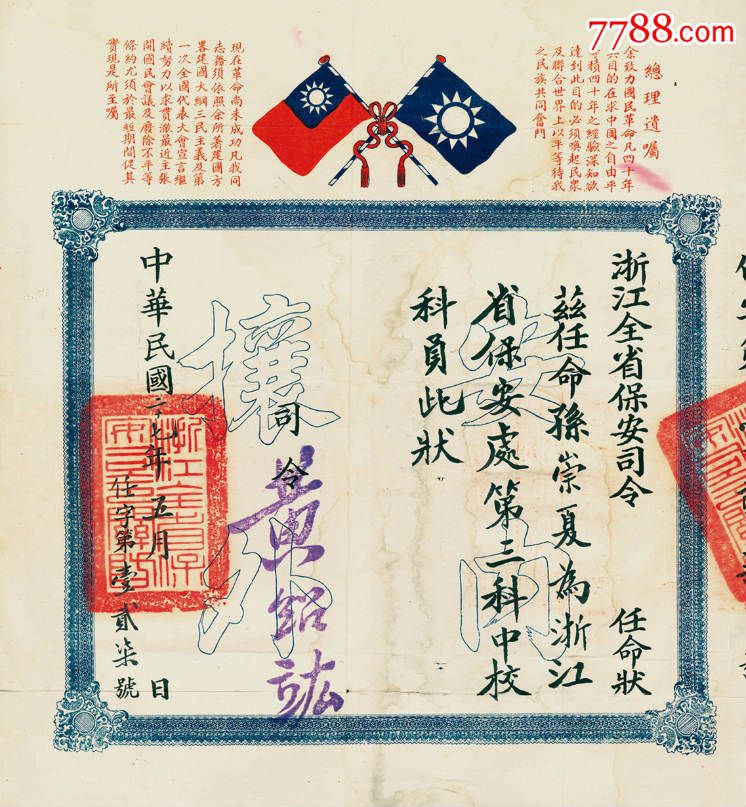 7788.com
總理遺囑
余致力國民革命凡四十年
其目的在求中國之自由平
等積四十年之經驗深知欲
達到此目的必須喚起民眾
及聯合世界上以平等待我
之民族共同奮鬥
現在革命尚未成功凡我同
志務須依照余所著建國方
畧建國大綱三民主義及第
一次全國代表大會宣言繼
續努力以求貫澈最近主張
開國民會議及廢除不平等
條約尤須於最短期間促其
實現是所至囑
浙江全省保安司令 任命狀
茲任命孫崇夏為浙江
省保安處第三科中校
科員此狀
安內
攘外
司令 黃紹竑
中華民國二十七年五月 日
任字第壹貳柒號